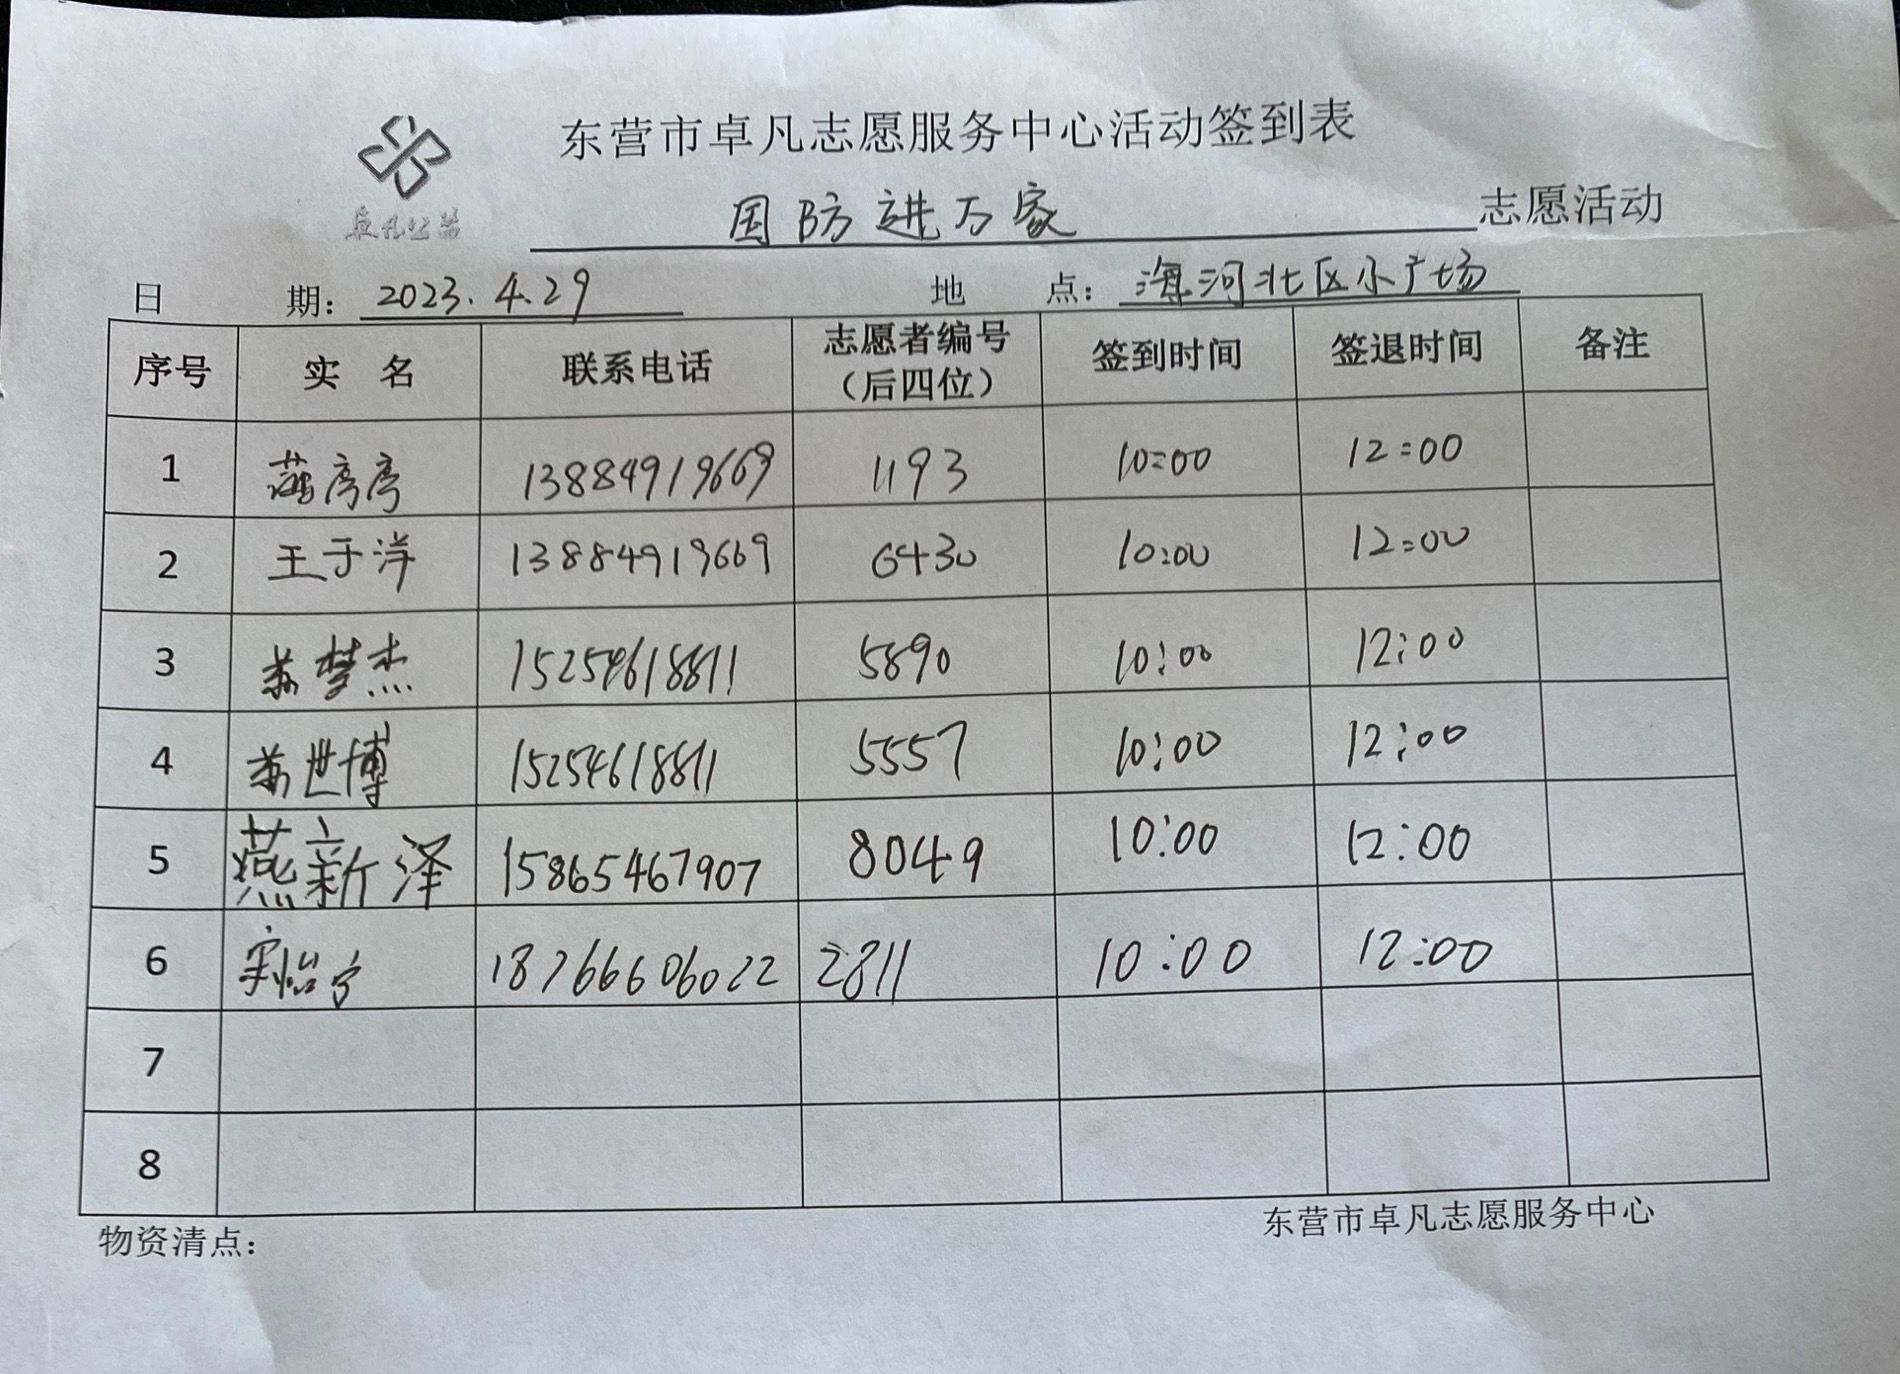 东营市卓凡志愿服务中心活动签到表
卓凡公益
国防进万家 志愿活动
日 期： 2023.4.29 地 点： 海河北区小广场
序号 实 名 联系电话 志愿者编号（后四位） 签到时间 签退时间 备注
1 薄亭亭 13884919669 1193 10:00 12:00
2 王于洋 13884919669 6430 10:00 12:00
3 苏梦杰 15254618811 5890 10:00 12:00
4 苏世博 15254618811 5557 10:00 12:00
5 燕新泽 15865467907 8049 10:00 12:00
6 宋怡宁 18766606022 2811 10:00 12:00
7
8
物资清点： 东营市卓凡志愿服务中心